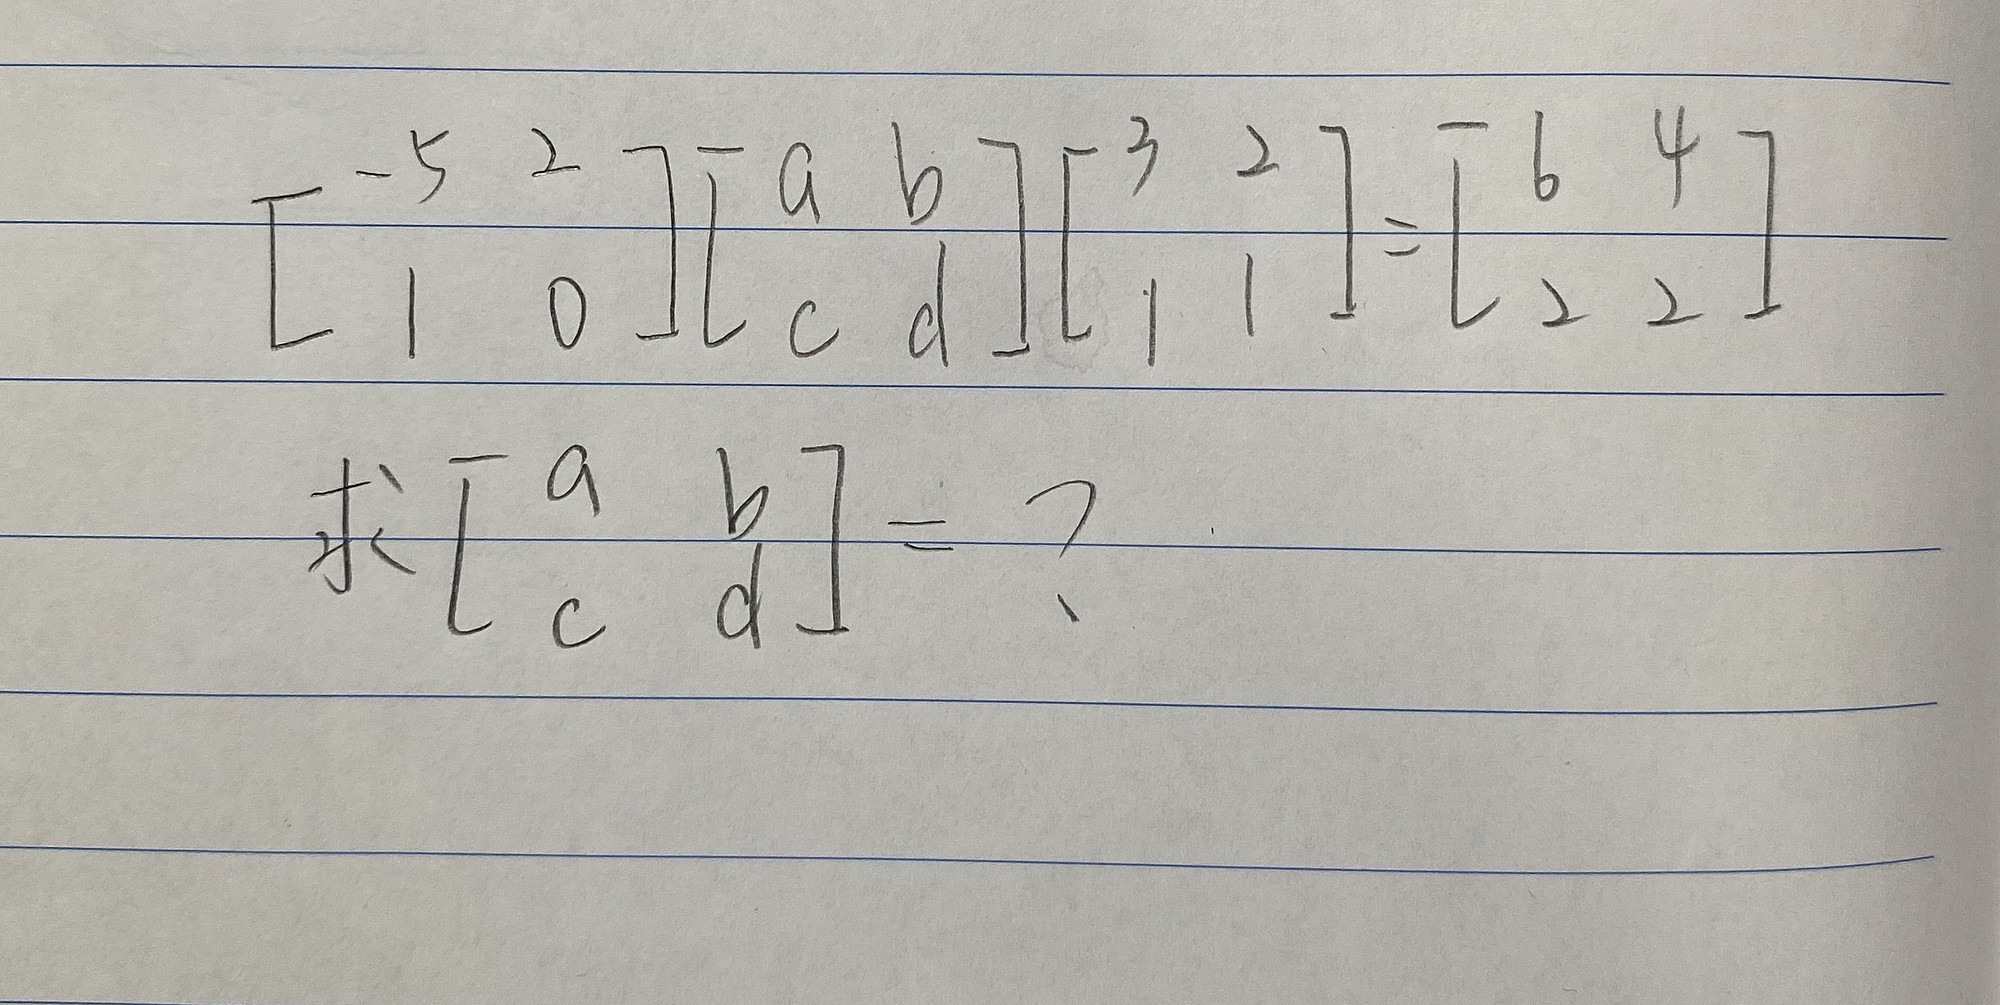 [-5 2 1 0][a b c d][3 2 1 1]=[6 4 2 2]
求[a b c d]=?